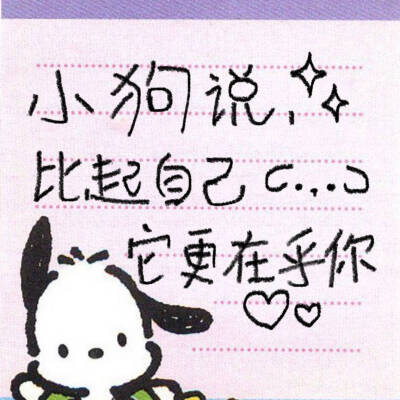 小狗说,
比起自己 ૮. , . ა
它更在乎你